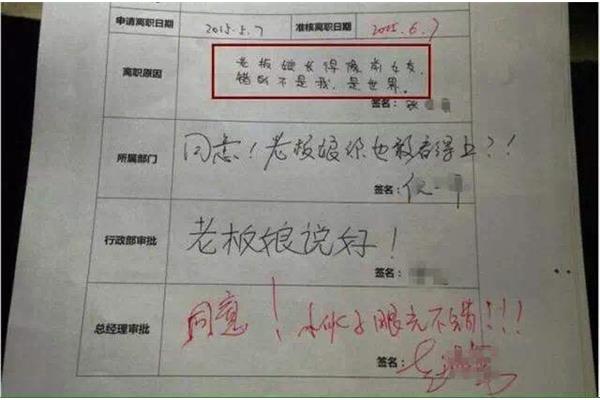 申请离职日期 2015.5.7 准核离职日期 2015.6.7
老板娘长得像前女友,
离职原因
错的不是我,是世界。
签名: 张
所属部门 同意!老板娘你也敢看得上?!!
签名:
行政部审批 老板娘说好!
签名:
总经理审批 同意!小伙子眼光不错!!!
签名: